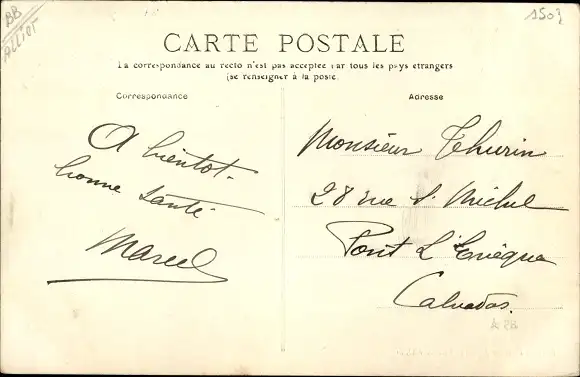 BB
Allier
1503
CARTE POSTALE
La correspondance au recto n'est pas acceptée par tous les pays étrangers
(se renseigner à la poste.
Correspondance
Adresse
A bientot.
bonne santé
Marcel
Monsieur Thurin
28 rue St Michel
Pont L'Evêque
Calvados.